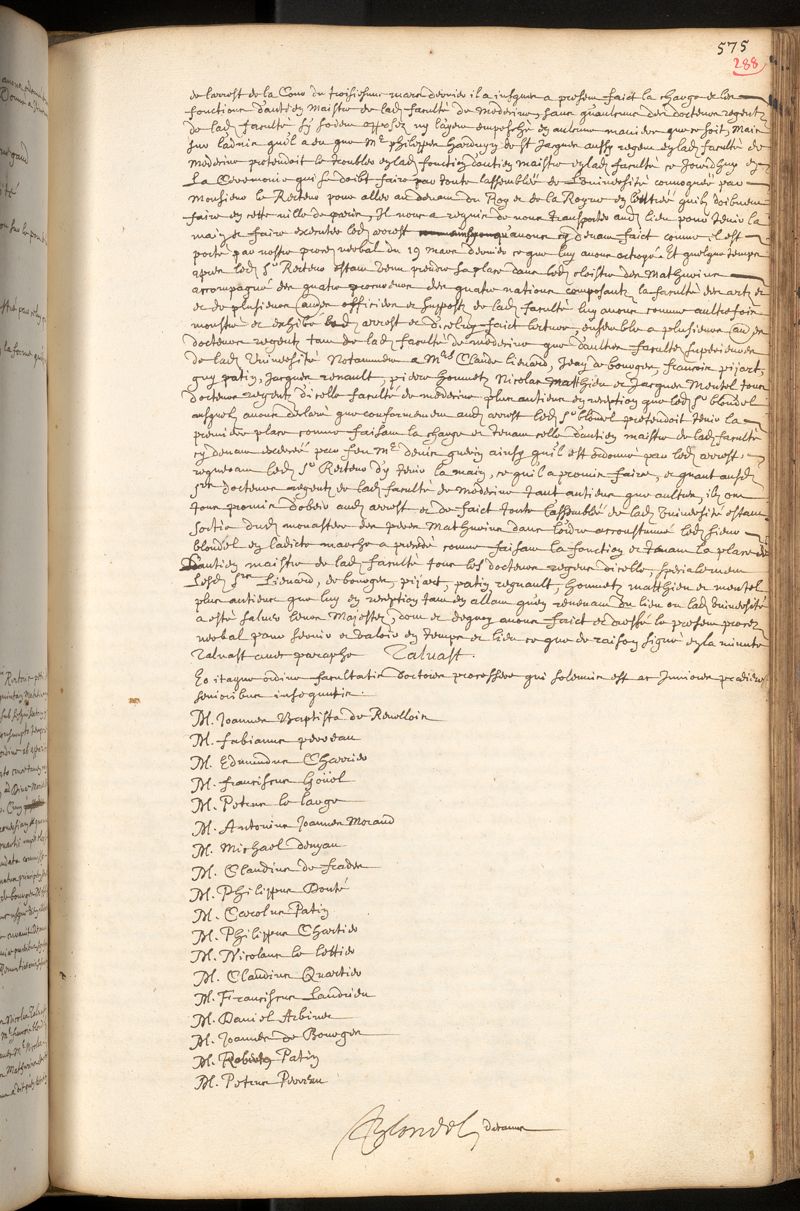 575
288
de larrest de la Cour du troisiesme mars dernier il a jusques a present faict la charge et les
fonctions d'antien Maistre de lad faculté de Medecine, sans qu'aulcuns des docteurs regentz
de lad faculté s'y soient opposez ny layent empesché en aulcune maniere que ce soit, Mais
sur ladvis qu'il a eu que Me philippes Hardouyn de St Jacques aussy regent en lad faculté de
Medecine pretendoit le troubler en lad fonction d'antien maistre en lad faculté ce jourdhuy en
La Ceremonie qui se doibt faire par toute lassemblée de Luniversité convoquée par
Monsieur le Recteur pour aller au devant du Roy et de la Royne en lentrée quilz doibvent
faire en cette ville de paris, Il nous a requis de nous transporter aud lieu pour tenir la
main et faire executer led arrest ainsy qu'avons cy devant faict comme il est
porté par nostre procez verbal du 19 mars dernier ce que luy avons octroyé. Et quelque temps
apres led Sr Recteur estant venu prendre sa place dans led cloistre des Mathurins
accompagné des quatre procureurs des quatre nations composantz la faculté des artz et
et de plusieurs autres officiers et suppostz de lad faculté luy avons comme aultresfois
monstré et exhibé led arrest et d'iceluy faict lecture, ensemble a plusieurs autres
docteurs regentz tant de lad faculté de medecine que d'aultres facultez superieures
de lad Université Notamment a Mrs Claude Lienard, Jean de bourges, francois pijart,
guy patin, Jacques renault, pierre Hommetz Nicolas Matthieu et Jacques Mentel tous
docteurs regentz d'icelle faculté de medecine plus antiens en reception que led Sr blondel
ausquelz avons declaré que conformement aud arrest led Sr blondel pretendoit tenir la
premiere place comme faisant la charge et tenant celle d'antien maistre de lad faculté
cy devant exercée par feu Me denis guerin ainsy quil est ordonné par led arrest,
requerant led Sr Recteur d'y tenir la main, ce quil a promis faire, et quant ausd
Srs docteurs regentz de lad faculté de Medecine tant antiens que aultres, ilz ont
tous promis d'obeir aud arrest et de faict toute lassemblée de lad Université estant
sortie dud monastere des peres Mathurins dans lordre accoustumé led sieur
blondel en ladicte marche a precedé comme faisant la fonction et tenant la place de
d'antien maistre de lad faculté tous les docteurs regens d'icelle, specialement
Lesd Srs Lienard, de bourges, pijart, patin regnault, Hommetz matthieu et mentel
plus antiens que luy en reception tant en allant qu'en revenant du lieu ou lad Université
a esté saluer leurs Majestez, dont et dequoy avons faict et dressé le present procez
verbal pour servir et valoir en temps et lieu ce que de raison signé en la minute
Talvast avec paraphe Talvast.
Eo itaque ordine facultatis doctores processere qui solemnis est ac Juniores praedictos
senioribus insequutis.
M. Joannes Baptista de Revelloix
M. fabianus perreau
M. Edmundus Charrier
M. franciscus Goüel
M. Petrus le large
M. Antonius Joannes Morand
M. Michael denyau
M. Claudius de frades
M. Philippus Douté
M. Carolus Patin
M. Philippus Chartier
M. Nicolaus le lettier
M. Claudius Quartier
M. Franciscus Landrieu
M. Daniel Arbinet
M. Joannes de Bourges
M. Robertus Patin
M. Petrus Perreau
Blondel, decanus